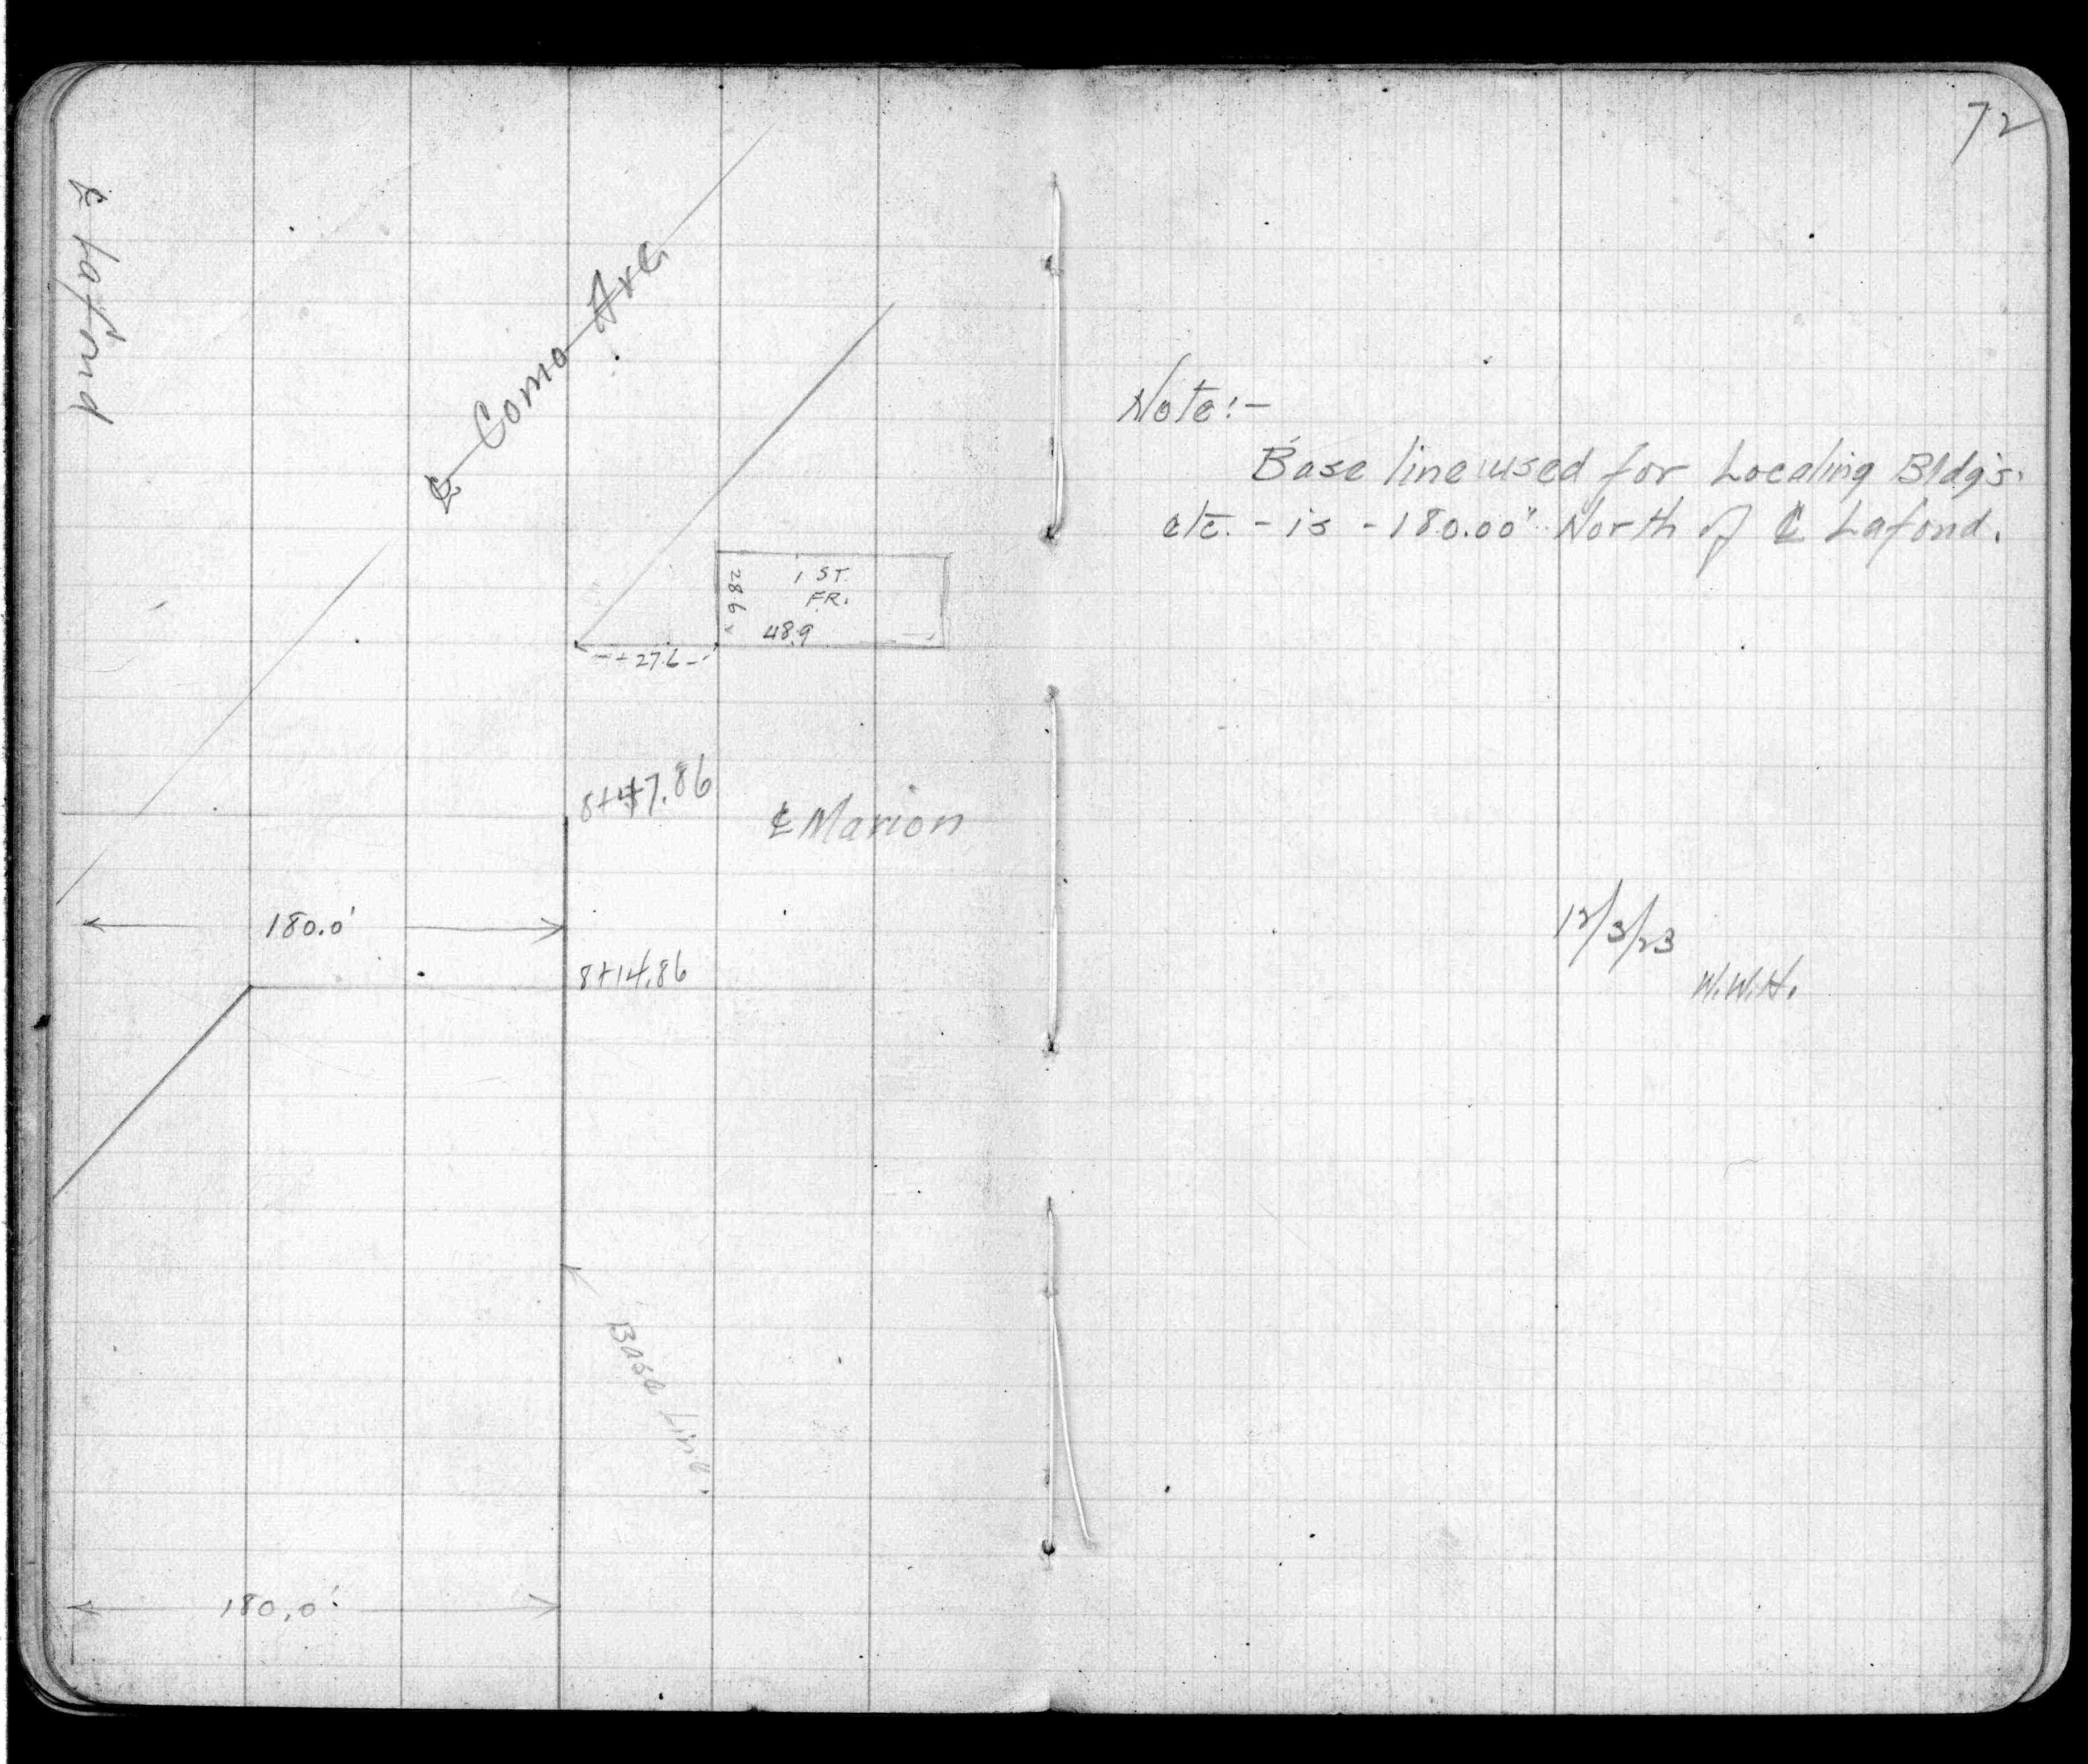 ℄ Lafond
℄ Como Ave
1 ST.
FR.
28.6
48.9
27.6
8+47.86
℄ Marion
180.0'
8+14.86
Base Line
180.0'
72
Note:-
Base line used for Locating Bldg's.
etc. - is - 180.00' North of ℄ Lafond.
12/3/23
W.W.H.